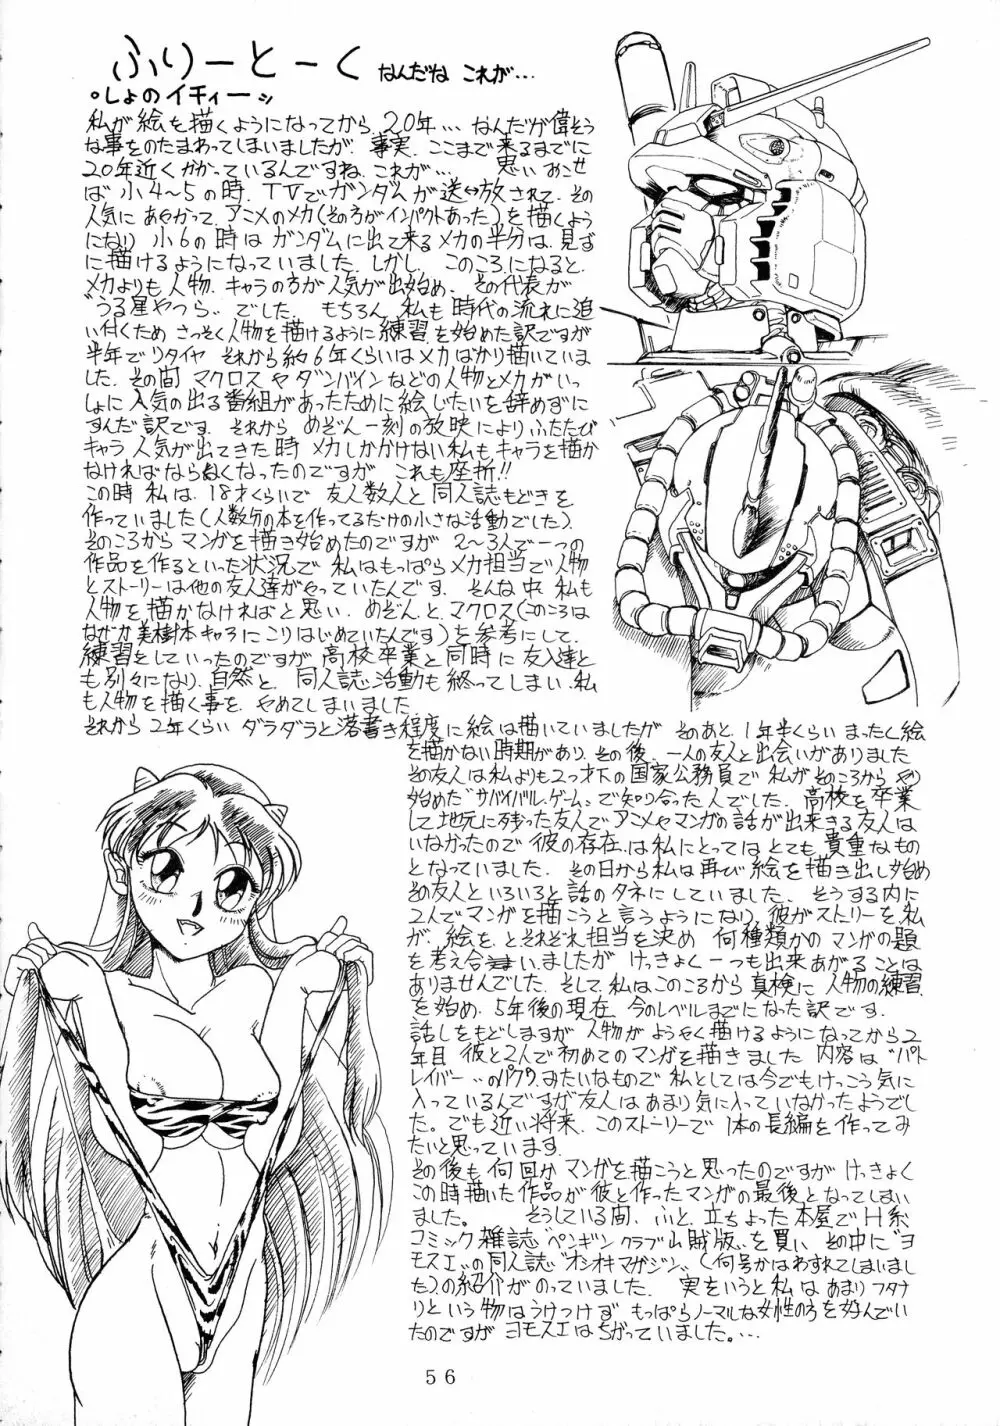 ふりーとーく なんだね これが…
○しょのイチィーッ
私が絵を描くようになってから20年… なんだが偉そう
な事をのたまわってしまいましたが、事実、ここまで来るまでに
20年近くかかっているんですね、これが… 思いおこせ
ば小4〜5の時、TVでガンダムが送放されて、その
人気にあやかって、アニメのメカ(その方がインパクトあった)を描くよう
になり 小6の時はガンダムに出て来るメカの半分は、見ず
に描けるようになっていました。しかし、このころになると、
メカよりも人物、キャラの方が人気が出始め、その代表が
“うる星やつら”でした。もちろん、私も時代の流れに追
い付くため さっそく人物を描けるように練習を始めた訳ですが
半年でリタイヤ それから約6年くらいはメカばかり描いていま
した。その間 マクロスやダンバインなどの人物とメカがいっ
しょに人気の出る番組があったために絵じたいを辞めずに
すんだ訳です。それから めぞん一刻の放映によりふたたび
キャラ人気が出てきた時 メカしかかけない私もキャラを描か
なければならぬくなったのですが これも座折!!
この時 私は、18才くらいで 友人数人と同人誌もどきを
作っていました(人数分の本を作ってるだけの小さな活動でした)。
そのころからマンガを描き始めたのですが 2〜3人で一つの
作品を作るといった状況で 私はもっぱらメカ担当で人物
とストーリーは他の友人達がやっていたんです。そんな中、私も
人物を描かなければと思い、めぞんと、マクロス(このころは
なぜか美樹本キャラにこりはじめていたんです)を参考にして、
練習をしていったのですが 高校卒業と同時に 友人達と
も別々になり、自然と、同人誌活動も終ってしまい、私
も人物を描く事を、やめてしまいました
それから2年くらい ダラダラと落書き程度に絵は描いていましたが そのあと、1年半くらいまったく絵
を描かない時期があり、その後、一人の友人と出会いがありました
その友人は私よりも2つ才下の国家公務員で 私がそのころから や
始めた“サバイバルゲーム”で知り合った人でした。高校を卒業
して地元に残った友人でアニメやマンガの話が出来きる友人は
いなかったので 彼の存在は私にとってはとても貴重なもの
となっていました。その日から私は再び絵を描き出し始め
その友人といろいろと話のタネにしていました。そうする内に
2人でマンガを描こうと言うようになり、彼がストーリーを、私
が、絵を、とそれぞれ担当を決め 何種類かのマンガの題
を考え合いましたが けっきょく一つも出来あがることは
ありませんでした。そして、私はこのころから真検に人物の練習
を始め、5年後の現在、今のレベルまでになった訳です。
話しをもどしますが 人物がようやく描けるようになってから2
年目 彼と2人で初めてのマンガを描きました 内容は“パト
レイバー”のパクりみたいなもので 私としては今でもけっこう気に
入っているんですが友人は あまり気に入っていなかったようでし
た。でも近い将来、このストーリーで 1本の長編を作ってみ
たいと思っています。
その後も何回かマンガを描こうと思ったのですが けっきょく
この時描いた作品が彼と作ったマンガの最後となってしまい
ました。 そうしている間、ふと、立ちよった本屋でH系
コミック雑誌“ペンギンクラブ山賊版”を買い その中に“ヨ
モスエ”の同人誌“オシオキマガジン”(何号かはわすれてしまいまし
た)の紹介がのっていました。実をいうと私はあまりフタナ
リという物はうけつけず もっぱらノーマルな女性の方を好んでい
たのですが ヨモスエはちがっていました。…
56